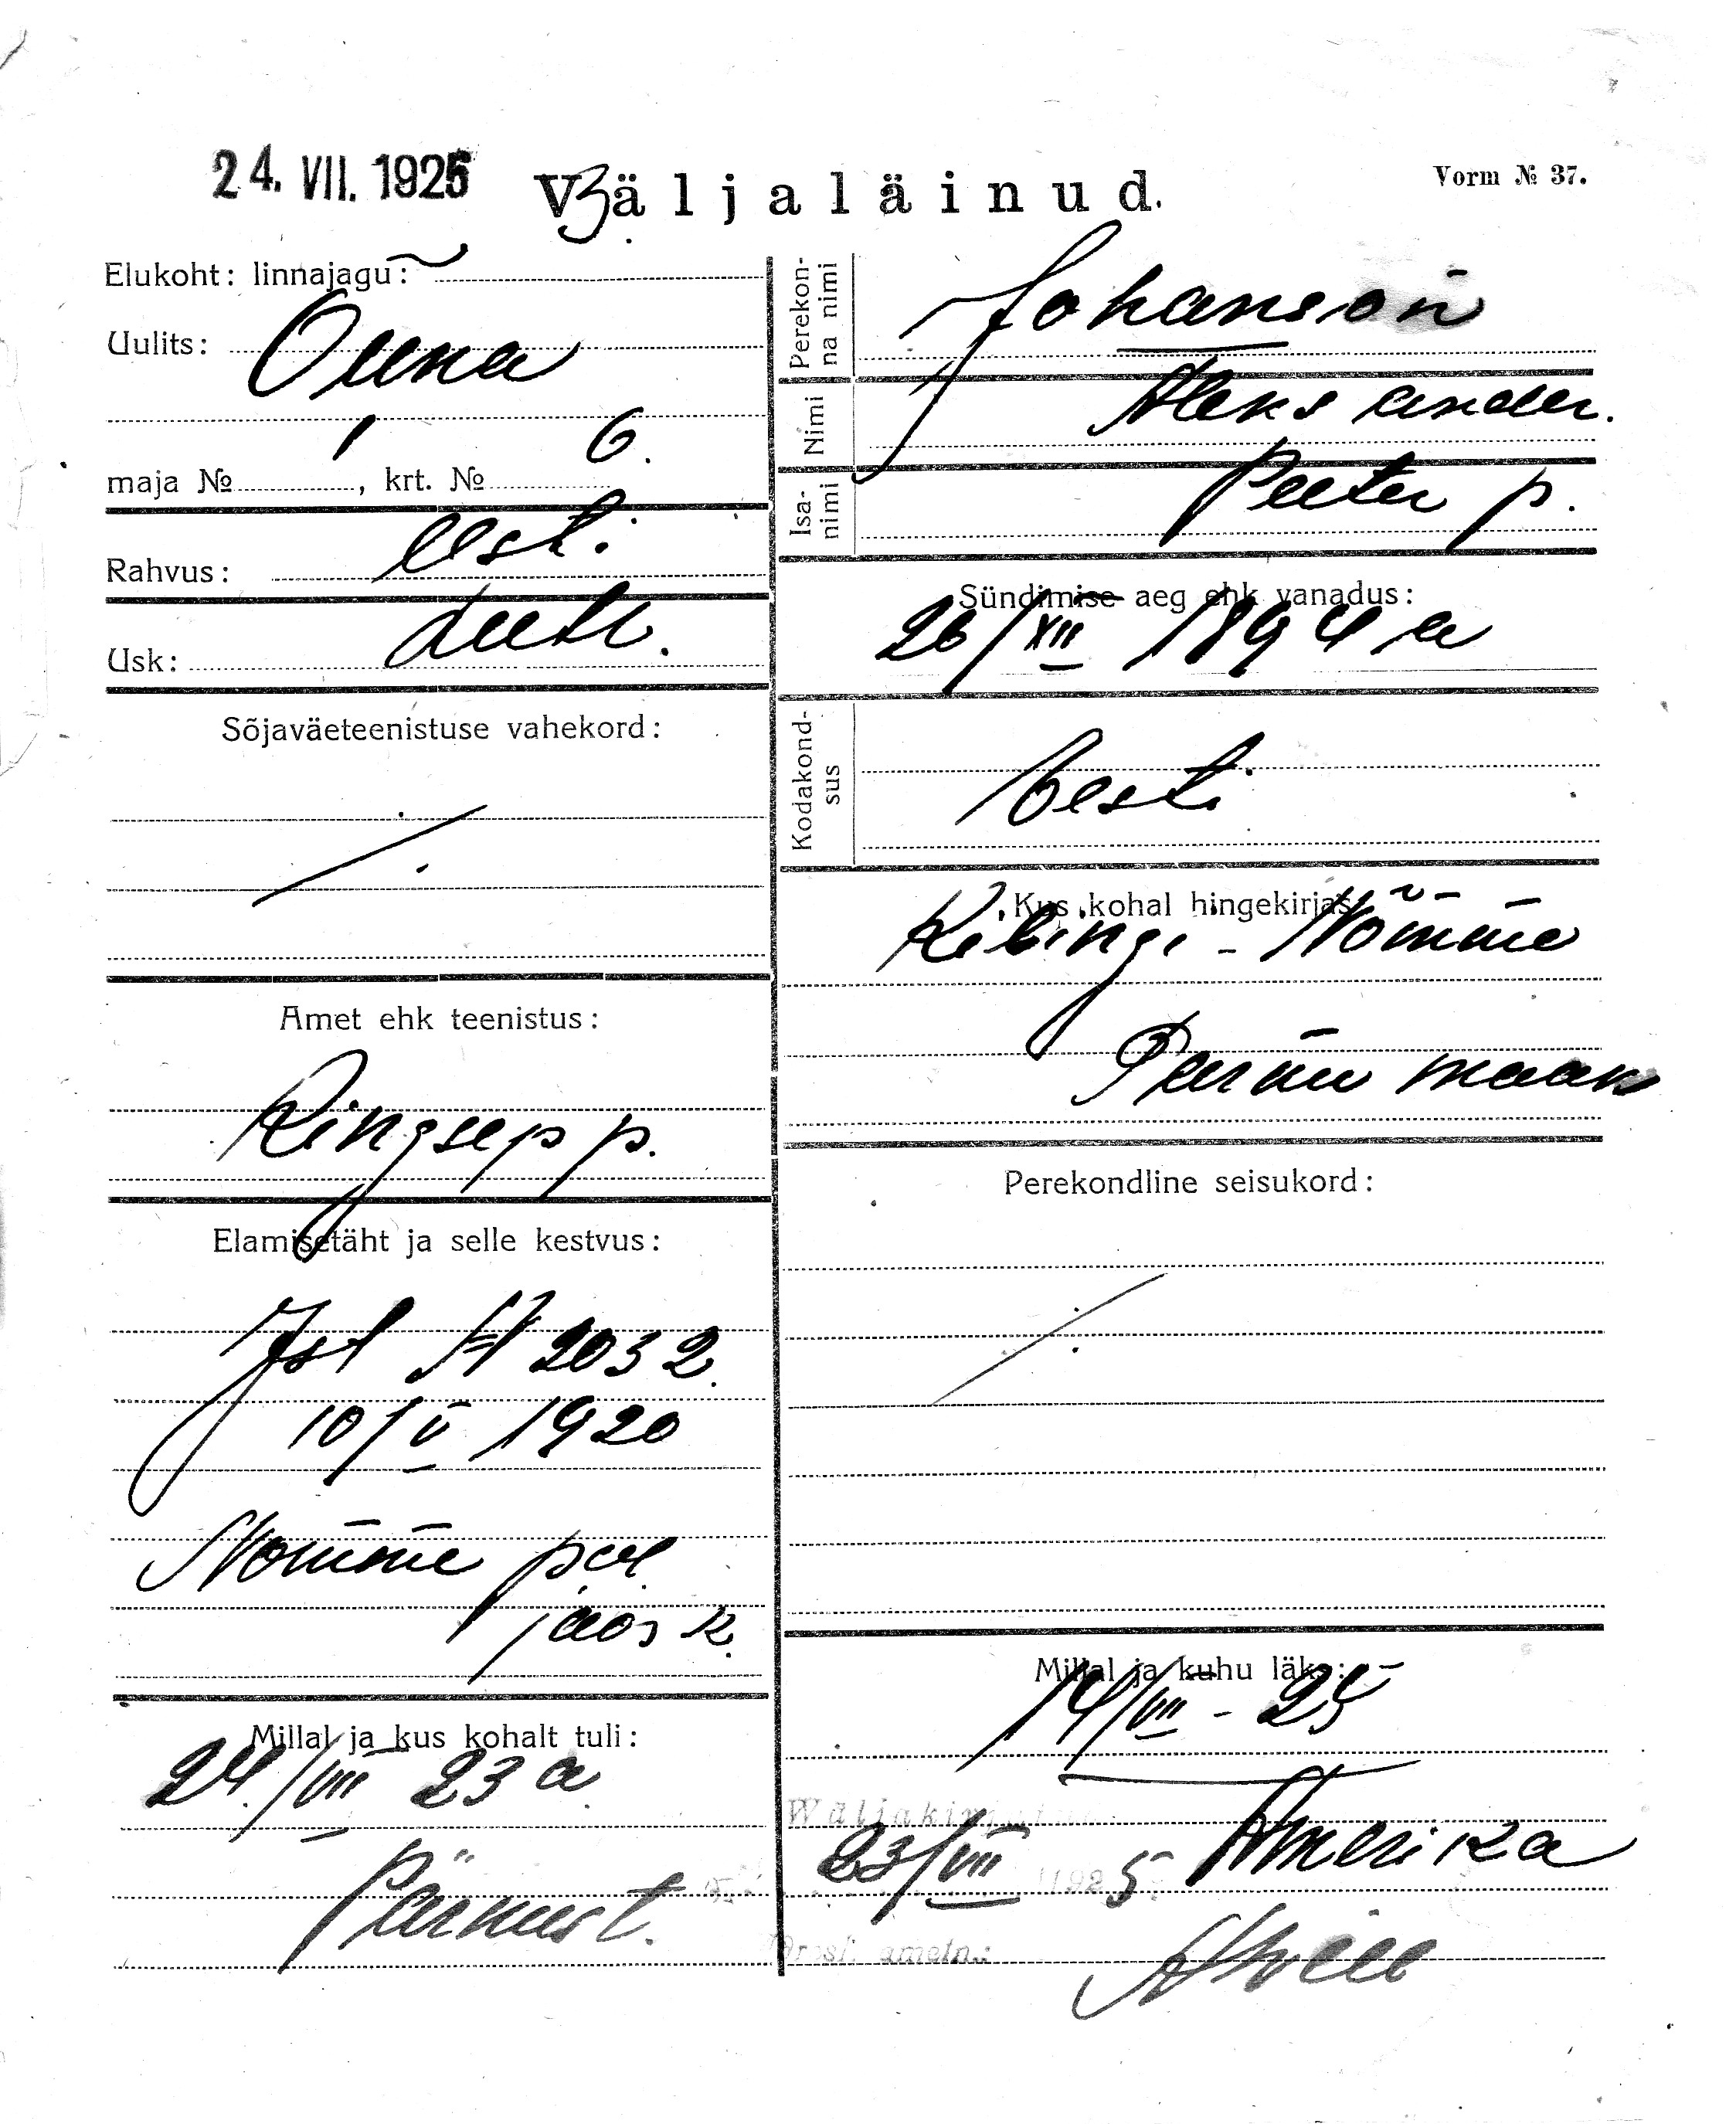 24. VII. 1925
Väljaläinud.
Vorm № 37.
Elukoht: linnajagu:
Uulits: Õuna
maja № 1, krt. № 6.
Rahvus: eesti
Usk: Luth.
Sõjaväeteenistuse vahekord:
Amet ehk teenistus:
Kingsepp.
Elamisetäht ja selle kestvus:
Ist A 2032.
10/V 1920
Nomme pol.
jaosk.
Millal ja kus kohalt tuli:
24/VIII 23 a
Pärnust.
Perekonna nimi
Johanson
Nimi
Aleksander.
Isanimi
Peeter p.
Sündimise aeg ehk vanadus:
26/XII 1894 a
Kodakondsus
Eesti
Kus kohal hingekirjas:
Kilingi-Nõmme
Pärnu maak
Perekondline seisukord:
Millal ja kuhu läks:
14/VII - 25
Amerika
23/VII 1925
ametn.: